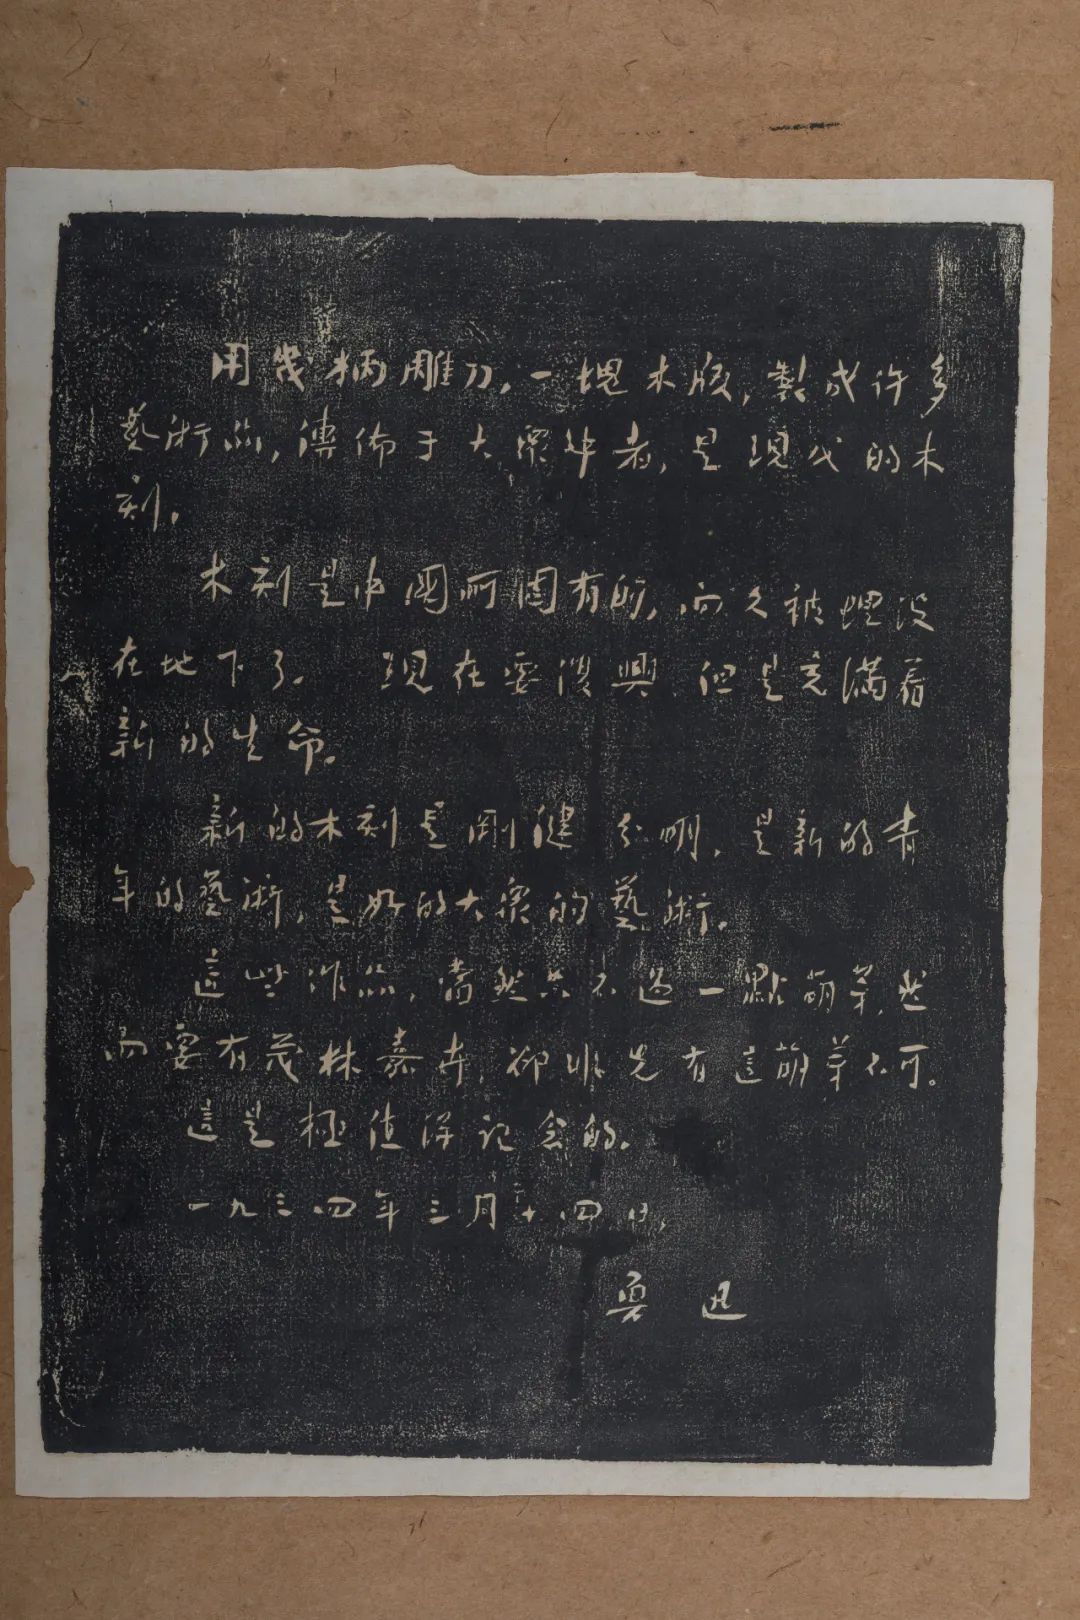 用幾柄雕刀，一塊木版，製成許多
藝術品，傳佈于大衆中者，是現代的木
刻。
木刻是中國所固有的，而久被埋没
在地下了。 現在要復興，但是充滿着
新的生命。
新的木刻是剛健 分明，是新的青
年的藝術，是好的大衆的藝術。
這些作品，當然只不過一點萌芽，然
而要有茂林嘉卉，卻非先有這萌芽不可。
這是極值得記念的。
一九三四年三月十四日，
魯 迅